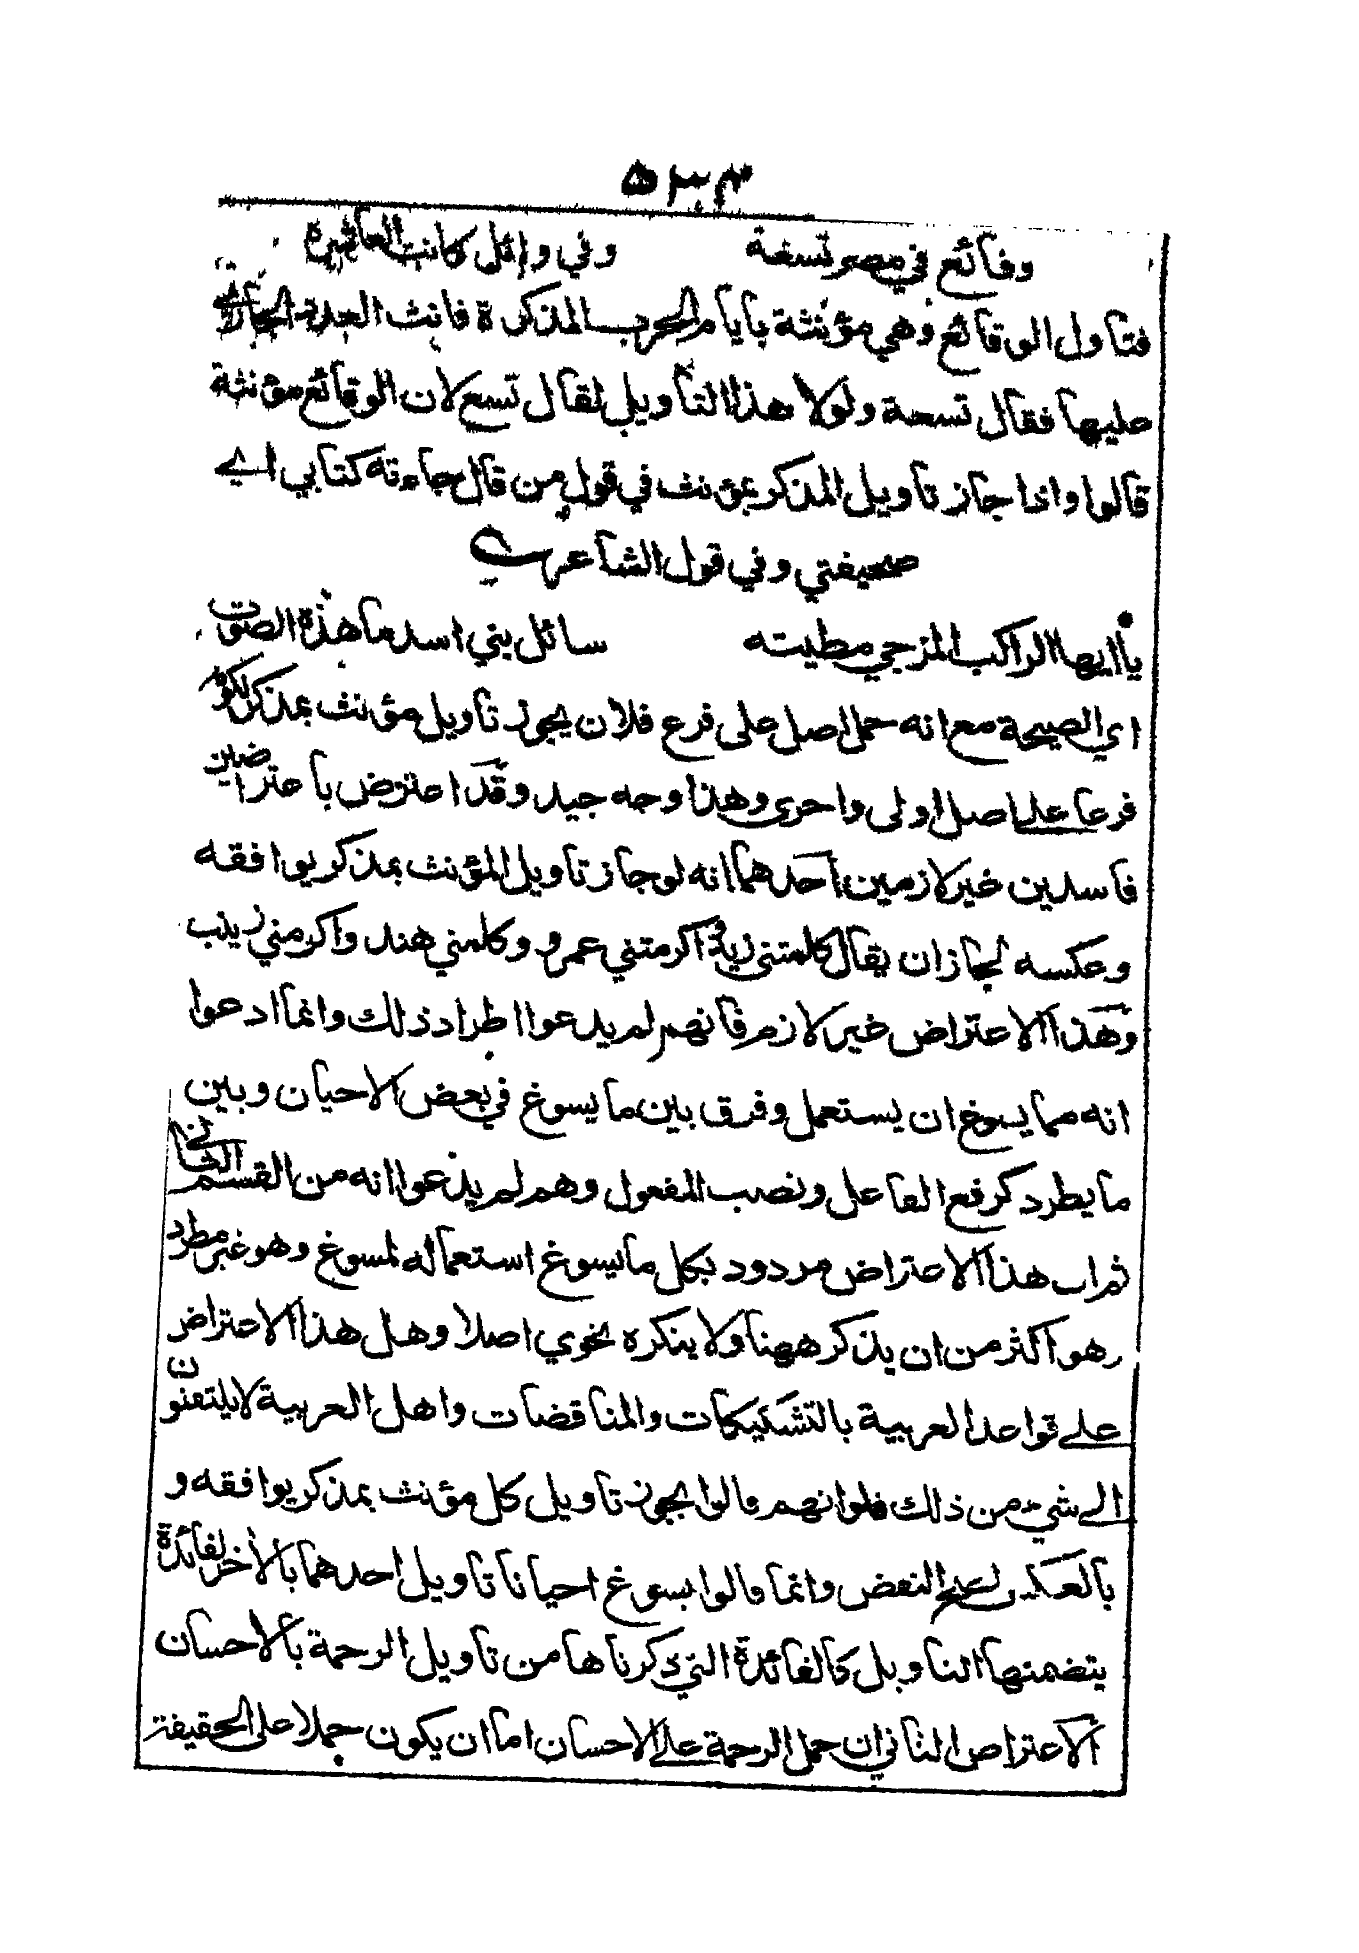 ٥٢٣
وقائع في مصر تسعة وفي وائل كانت العاشرة
فتاول الوقائع وهي مؤنثة بايام الحرب المذكرة فانث العدد الجاري
عليها فقال تسعة ولولا هذا التاويل لقال تسع لان الوقائع مؤنثة
قالوا واذا جاز تاويل المذكر بمؤنث في قول من قال جاءته كتابي اي
صحيفتي وفي قول الشاعر
يا ايها الراكب المزجي مطيته سائل بني اسد ما هذه الصوت
اي الصيحة مع انه حمل اصل على فرع فلان يجوز تاويل مؤنث بمذكر لكونه
فرعا على اصل اولى واحرى وهذا وجه جيد وقد اعترض باعتراضين
فاسدين غير لازمين احدهما انه لو جاز تاويل المؤنث بمذكر يوافقه
وعكسه لجاز ان يقال كلمتني زيد واكرمتني عمرو وكلمني هند واكرمني زينب
وهذا الاعتراض غير لازم فانهم لم يدعوا اطراد ذلك وانما ادعوا
انه مما يسوغ ان يستعمل وفرق بين ما يسوغ في بعض الاحيان وبين
ما يطرد كرفع الفاعل ونصب المفعول وهم لم يدعوا انه من القسم الثاني
ثم ان هذا الاعتراض مردود بكل ما يسوغ استعماله لمسوغ وهو غير مطرد
وهو اكثر من ان يذكر ههنا ولا ينكره نحوي اصلا وهل هذا الا اعتراض
على قواعد العربية بالتشكيكات والمناقضات واهل العربية لا يلتفتون
الى شيء من ذلك فلو انهم قالوا يجوز تاويل كل مؤنث بمذكر يوافقه و
بالعكس لصح النقض وانما قالوا يسوغ احيانا تاويل احدهما بالاخر لفائدة
يتضمنها التاويل كالفائدة التي ذكرناها من تاويل الرحمة بالاحسان
الاعتراض الثاني ان حمل الرحمة على الاحسان اما ان يكون حملا على الحقيقة